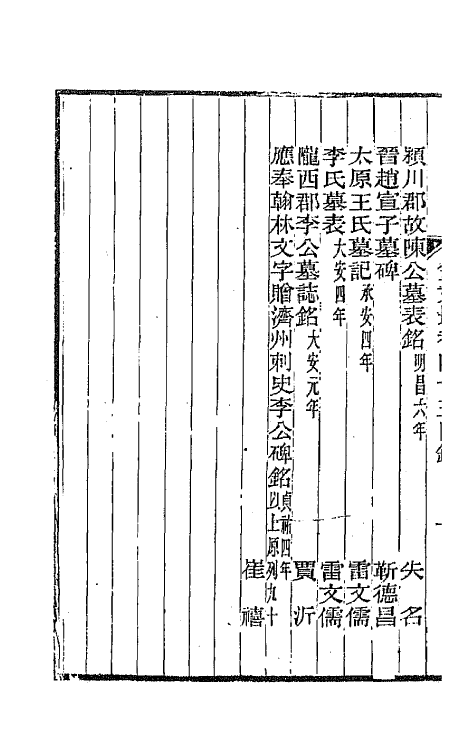 潁川郡故陳公墓表銘明昌六年 失名
晉趙宣子墓碑 靳德昌
太原王氏墓記承安四年 雷文儒
李氏墓表大安四年 雷文儒
隴西郡李公墓誌銘大安元年 賈沂
應奉翰林文字贈濟州刺史李公碑銘貞祐四年以上原列九十
崔禧